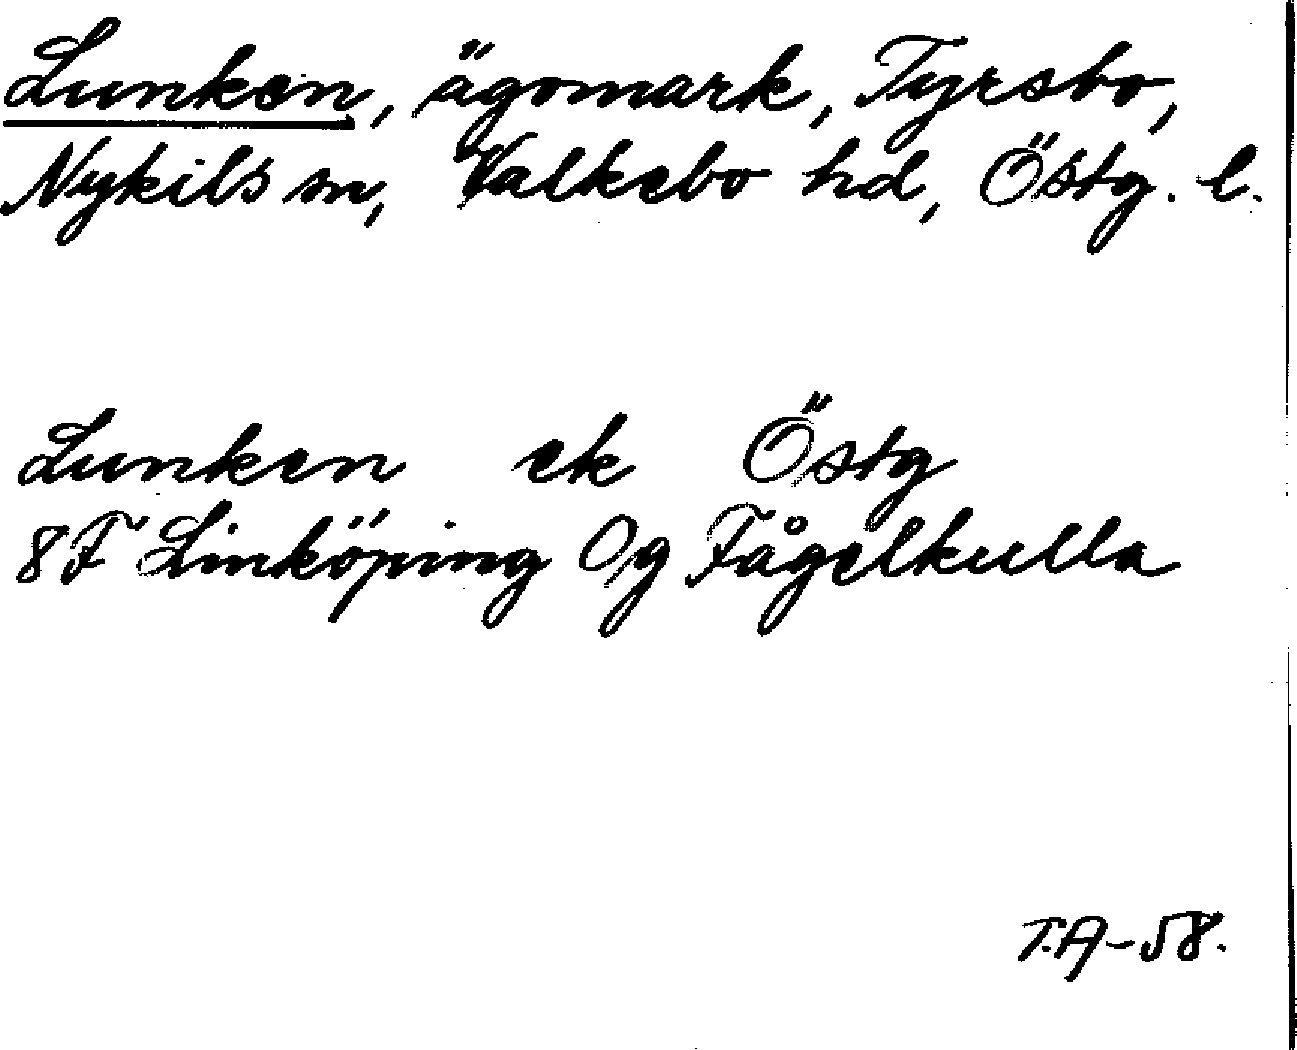 Lunken, ägomark, Tyrsbo,
Nykils sn, Valkebo hd, Östg. l.
Lunken ek Östg
8F Linköping 0g Fågelkulla
T.A-58.